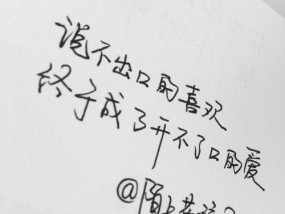 说不出口的喜欢
终于成了开不了口的爱
@陌上